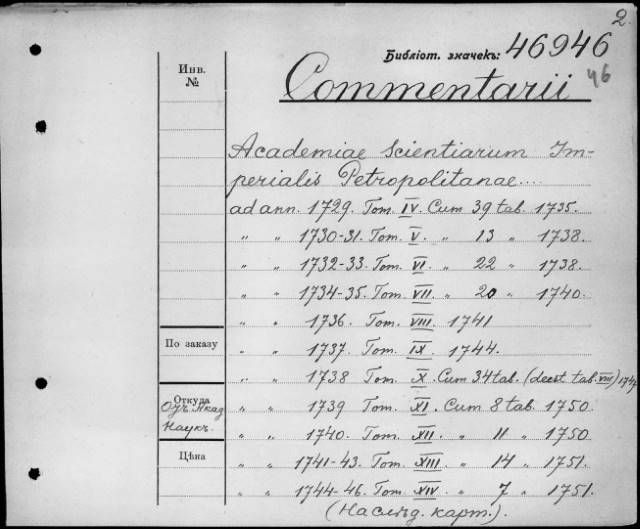 2.
Библіот. значекъ: 46946
46
Инв.
№
Commentarii
Academiae Scientiarum Im-
perialis Petropolitanae....
ad ann. 1729. Tom. IV. Cum 39 tab. 1735.
" " 1730-31. Tom. V. " 13 " 1738.
" " 1732-33. Tom. VI. " 22 " 1738.
" " 1734-35. Tom. VII. " 20 " 1740.
" " 1736. Tom. VIII. 1741
" " 1737. Tom. IX. 1744.
По заказу
" " 1738 Tom. X. Cum 34 tab. (deest tab. VIII) 1747
Откуда
Отъ Акад
Наукъ.
" " 1739 Tom. XI. Cum 8 tab. 1750.
" " 1740. Tom. XII. " 11 " 1750
Цѣна
" " 1741-43. Tom. XIII " 14 " 1751.
" " 1744-46. Tom. XIV " 7 " 1751.
(На слѣд. карт.).